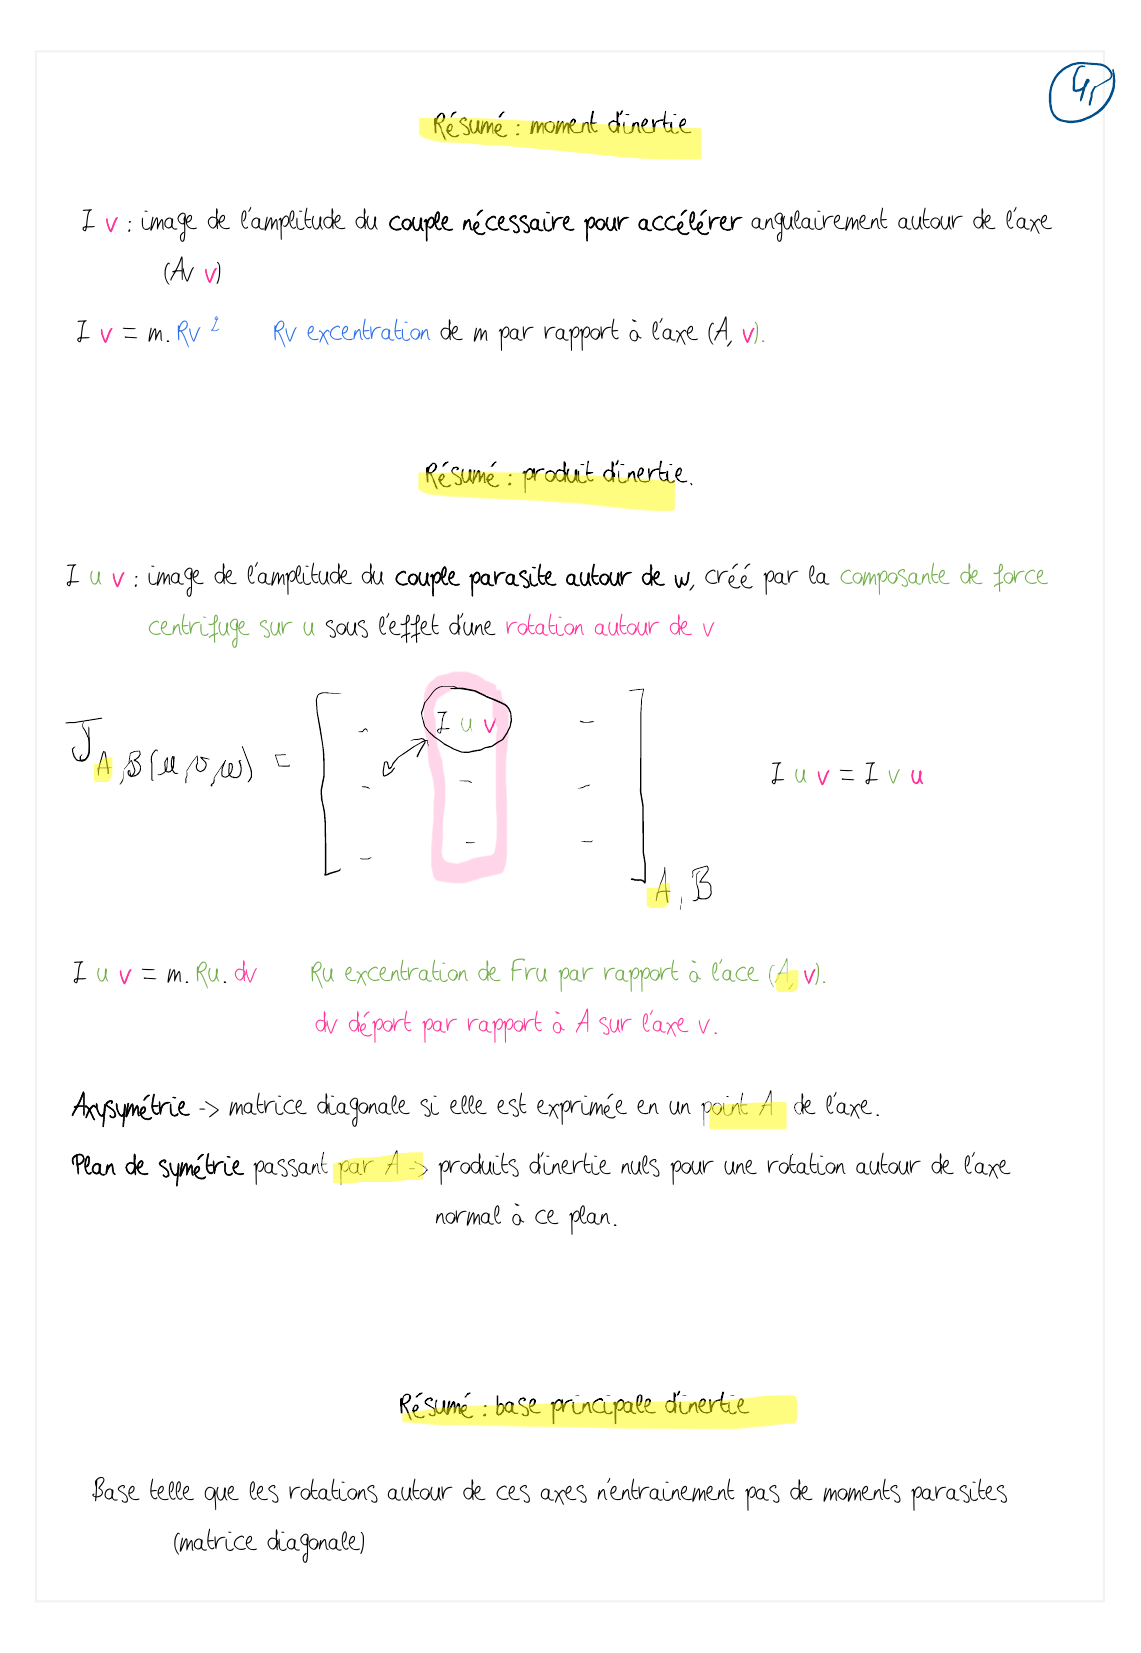 Résumé : moment d'inertie
I v : image de l'amplitude du couple nécessaire pour accélérer angulairement autour de l'axe
(Av v)
I v = m. Rv ² Rv excentration de m par rapport à l'axe (A, v).
Résumé : produit d'inertie.
I u v : image de l'amplitude du couple parasite autour de w, créé par la composante de force
centrifuge sur u sous l'effet d'une rotation autour de v
J A,B(u,v,w) = [ - I u v - - - - - - - ] A, B
I u v = I v u
I u v = m. Ru. dv Ru excentration de Fru par rapport à l'ace (A, v).
dv déport par rapport à A sur l'axe v.
Axysymétrie -> matrice diagonale si elle est exprimée en un point A de l'axe.
Plan de symétrie passant par A -> produits d'inertie nuls pour une rotation autour de l'axe
normal à ce plan.
Résumé : base principale d'inertie
Base telle que les rotations autour de ces axes n'entrainement pas de moments parasites
(matrice diagonale)